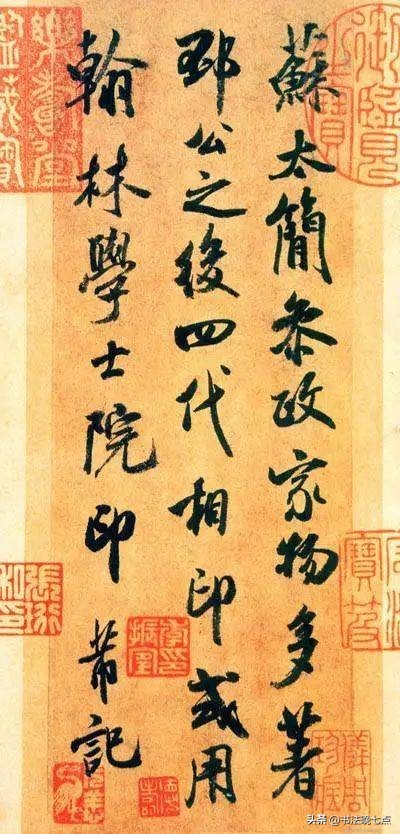 蘇太簡參政家物多著
邳公之後四代相印或用
翰林學士院印 芾記
头条 @书法晚七点